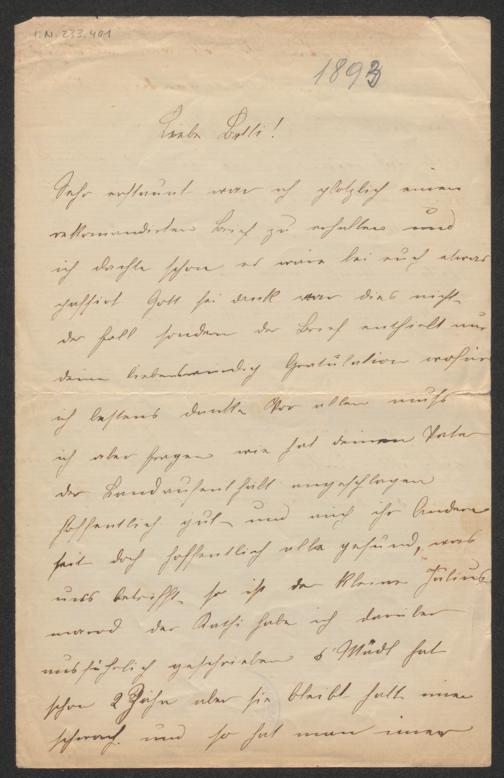 I.N. 233.401
1893
Liebe Betti!
Sehr erstaunt war ich plötzlich einen
rekomandirten Brief zu erhalten und
ich dachte schon es wäre bei euch etwas
passirt Gott sei dank war dies nicht
der Fall sondern der Brief enthielt nur
deine liebenswürdig Gratulation wofür
ich bestens danke Vor allem muß
ich aber fragen wie hat deinem Vater
der Landaufenthalt angeschlagen
hoffentlich gut und auch ihr Andern
seit doch hoffentlich alle gesund, was
uns betrifft so ist der kleine Julius
marod der Kathi habe ich darüber
ausführlich geschrieben s' Mädl hat
schon 2 Zähn aber sie bleibt halt immer
schwach und so hat man immer